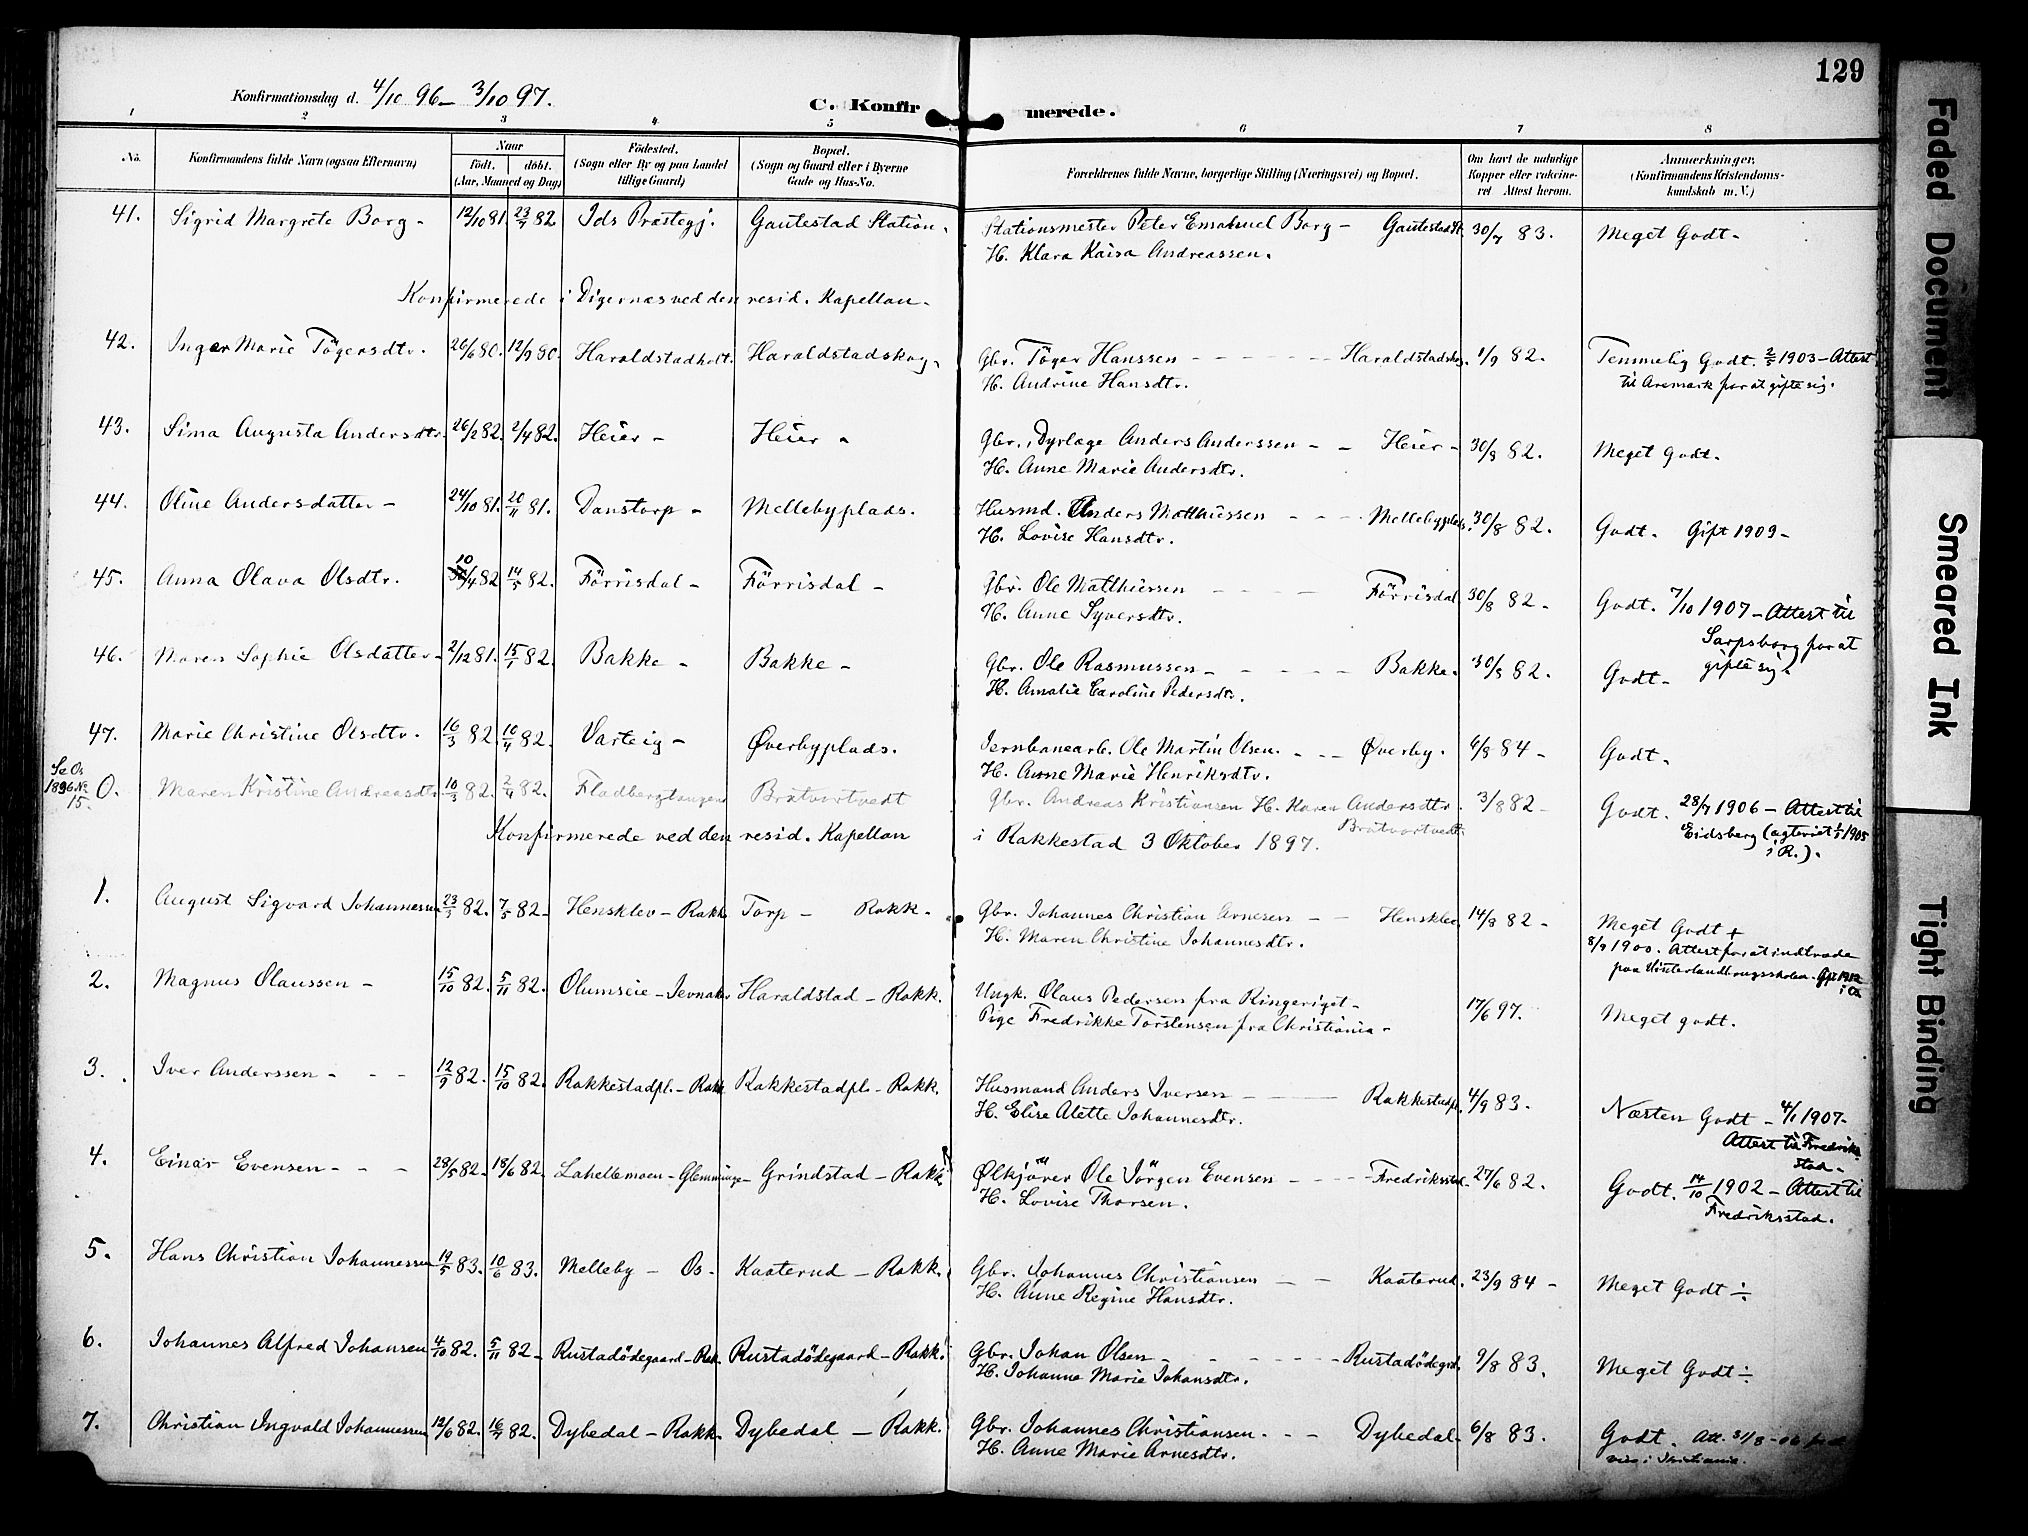 129
Konfirmationsdag d. 4/10 96 – 3/10 97.
C. Konfirmerede.
1 2 3 4 5 6 7 8
No. Konfirmandens fulde Navn (ogsaa Efternavn) Naar født. døbt. (Aar, Maaned og Dag) Fødested. (Sogn eller By og paa Landet tillige Gaard) Bopæl. (Sogn og Gaard eller i Byerne Gade og Hus-No. Forældrenes fulde Navne, borgerlige Stilling (Næringsvei) og Bopæl. Om havt de naturlige Kopper eller vaccineret Attest herom. Anmærkninger. (Konfirmandens Kristendomskundskab m. V.)
41. Sigrid Margrete Borg – 12/10 81. 23/4 82 Ids Præstegj. Gautestad Station. Stationsmester Peter Emanuel Borg – Gautestad St. 30/7 83. Meget Godt –
H. Klara Kaisa Andreassen.
Konfirmerede i Digernæs ved den resid. Kapellan –
42. Inger Marie Tögersdtr. 26/6 80. 12/9 80. Haraldstadholt. Haraldstadskog. Gbr. Töger Hanssen – – – Haraldstadskog. 1/9 82. Temmelig Godt. 2/5 1903 – Attest
H. Andrine Hansdtr. til Aremark for at gifte sig.
43. Sima Augusta Andersdtr. 26/2 82. 2/4 82. Heier – Heier – Gbr., Dyrlæge Anders Anderssen – – Heier – 30/8 82. Meget Godt.
H. Anne Marie Andersdtr.
44. Oline Andersdatter – 24/10 81. 20/11 81. Danstorp – Mellebyplads. Husmd. Anders Matthiissen – – – Mellebyplads. 30/8 82. Godt. Gift 1909 –
H. Lovise Hansdtr.
45. Anna Olava Olsdtr. 10/4 82 14/5 82. Förrisdal – Förrisdal – Gbr. Ole Matthiessen – – – Förrisdal. 30/8 82 – Godt. 7/10 1907 – Attest til
H. Anne Syversdtr. Sarpsborg for at
46. Maren Sophie Olsdatter – 2/12 81. 15/1 82. Bakke – Bakke – Gbr. Ole Rasmussen – – – Bakke. 30/8 82. Godt – gifte sig.
H. Amalie Caroline Pedersdtr.
47. Marie Christine Olsdtr. 16/3 82. 10/4 82. Varteig – Øverbyplads. Jernbanearb. Ole Martin Olsen. – – Øverby. 6/8 84 – Godt.
H. Anne Marie Henriksdtr.
Se Os 1896 No 15. O. Maren Kristine Andreasdtr. 10/3 82. 2/4 82. Fladbergtangen Bratvortvedt Gbr. Andreas Kristiansen H. Karen Andersdtr. Bratvortvedt. 3/8 82 – Godt. 28/9 1906 – Attest til
Eidsberg (ægteviet 1/1 1905
i R.).
Konfirmerede ved den resid. Kapellan i Rakkestad 3 Oktober 1897.
1. August Sigvard Johannessen 23/3 82. 7/5 82 – Hensklev – Rakk. Torp – Rakk. Gbr. Johannes Christian Arnesen – – Hensklev. 14/8 82 – Meget Godt +
H. Maren Christine Johannesdtr. 8/9 1900. Attest for at indtræde
paa Vinterlandbrugsskolen. Gift 1912 i Os
2. Magnus Olaussen – 15/10 82. 5/11 82. Olumseie – Jevnaker Haraldstad – Rakk. Ungk. Olaus Pedersen fra Ringeriget – 17/6 97. Meget godt.
Pige Fredrikke Torstensen fra Christiania –
3. Iver Anderssen – – – 12/9 82. 15/10 82. Rakkestadpl. – Rakk. Rakkestadpl. – Rakk. Husmand Anders Iversen – – Rakkestadpl. 4/9 83. Næsten Godt – 4/1 1907 –
H. Elise Alette Johannesdtr. Attest til Fredrikstad –
4. Einar Evensen – – – 28/5 82. 18/6 82. Lahellemoen – Glemminge – Grindstad – Rakk. Ølkjører Ole Jörgen Evensen – – – Fredriksstad. 27/6 82. Godt. 14/10 1902 – Attest til
H. Lovise Thorsen. Fredriksstad.
5. Hans Christian Johannessen 19/5 83. 10/6 83. Melleby – Os – Kaaterud – Rakk. Gbr. Johannes Christiansen – – Kaaterud. 23/9 84 – Meget Godt ÷
H. Anne Regine Hansdtr.
6. Johannes Alfred Johansen 4/10 82. 5/11 82 – Rustadödegaard – Rak. Rustadödegaard – Rakk. Gbr. Johan Olsen – – – Rustadödegrd. 9/8 83. Meget Godt ÷
H. Johanne Marie Johansdtr.
7. Christian Ingvald Johannessen 12/6 82. 16/7 82. Dybedal – Rakk. Dybedal – Rakk. Gbr. Johannes Christiansen. – – Dybedal. 6/8 83. Godt. Att. 31/8
H. Anne Marie Arnesdtr.
Faded Document
Smeared Ink
Tight Binding